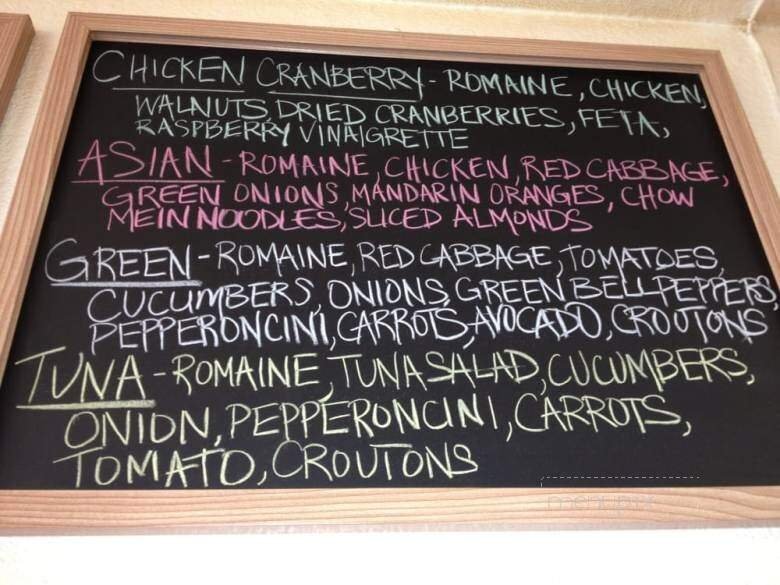 CHICKEN CRANBERRY - ROMAINE, CHICKEN,
WALNUTS, DRIED CRANBERRIES, FETA,
RASPBERRY VINAIGRETTE
ASIAN - ROMAINE, CHICKEN, RED CABBAGE,
GREEN ONIONS, MANDARIN ORANGES, CHOW
MEIN NOODLES, SLICED ALMONDS
GREEN - ROMAINE, RED CABBAGE, TOMATOES,
CUCUMBERS, ONIONS, GREEN BELL PEPPERS,
PEPPERONCINI, CARROTS, AVOCADO, CROUTONS
TUNA - ROMAINE, TUNA SALAD, CUCUMBERS,
ONION, PEPPERONCINI, CARROTS,
TOMATO, CROUTONS
menupix